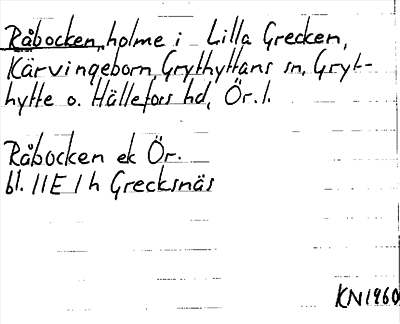 Råbocken, holme i Lilla Grecken,
Kärvingeborn, Grythyttans sn, Gryt-
hytte o. Hällefors hd, Ör. l.
Råbocken ek Ör.
bl. 11E 1h Grecksnäs
KN1960